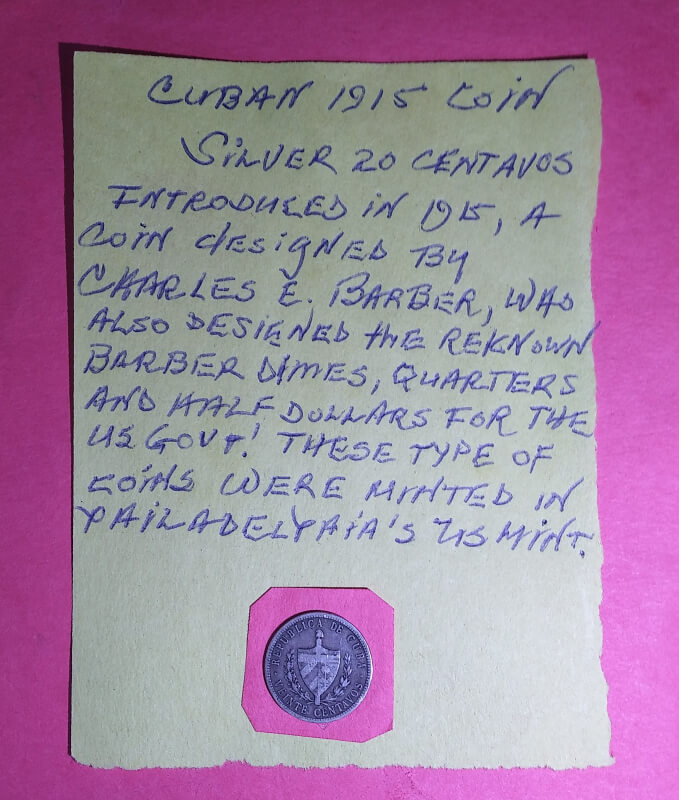 CUBAN 1915 COIN
SILVER 20 CENTAVOS
INTRODUCED IN 1915, A
COIN designED By
CHARLES E. BARBER, WHO
ALSO DESIGNED the REKNOWN
BARBER DIMES, QUARTERS
AND HALF DOLLARS FOR THE
US GOVt! THESE TYPE OF
COINS WERE MINTED IN
PHILADELPHIA'S US MINT.
REPUBLICA DE CUBA
VEINTE CENTAVOS